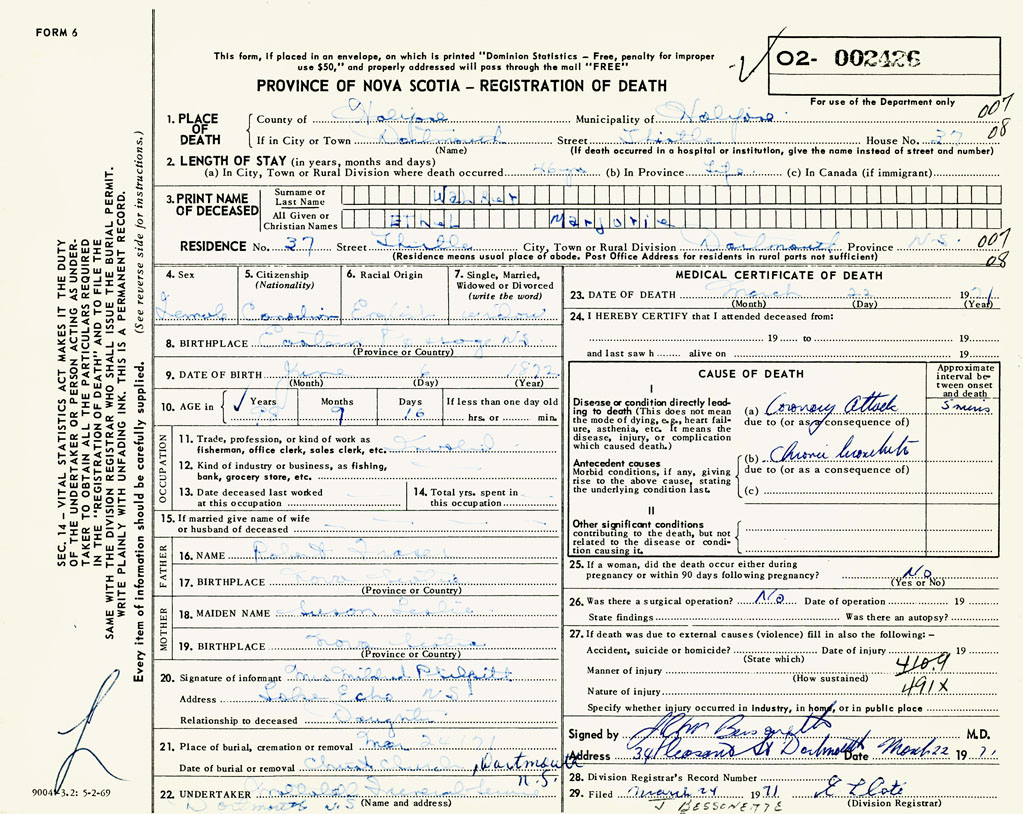 FORM 6
This form, if placed in an envelope, on which is printed "Dominion Statistics – Free, penalty for improper
use $50," and properly addressed will pass through the mail "FREE"
O2- 002426
For use of the Department only
PROVINCE OF NOVA SCOTIA – REGISTRATION OF DEATH
007
08
1. PLACE OF DEATH
County of Halifax Municipality of Halifax
If in City or Town Dartmouth Street Thistle House No. 37
(Name) (If death occurred in a hospital or institution, give the name instead of street and number)
2. LENGTH OF STAY (in years, months and days)
(a) In City, Town or Rural Division where death occurred 46 yrs (b) In Province Life (c) In Canada (if immigrant)
3. PRINT NAME OF DECEASED
Surname or Last Name Walker
All Given or Christian Names Ethel Marjorie
RESIDENCE No. 37 Street Thistle City, Town or Rural Division Dartmouth Province N.S. 007
(Residence means usual place of abode. Post Office Address for residents in rural parts not sufficient) 08
4. Sex
Female
5. Citizenship
(Nationality)
Canadian
6. Racial Origin
English
7. Single, Married,
Widowed or Divorced
(write the word)
widow
8. BIRTHPLACE Eastern Passage N.S.
(Province or Country)
9. DATE OF BIRTH June 6 1872
(Month) (Day) (Year)
10. AGE in Years Months Days If less than one day old
98 9 16 hrs. or min.
OCCUPATION
11. Trade, profession, or kind of work as
fisherman, office clerk, sales clerk, etc.
12. Kind of industry or business, as fishing,
bank, grocery store, etc.
13. Date deceased last worked
at this occupation
14. Total yrs. spent in
this occupation
15. If married give name of wife
or husband of deceased
FATHER
16. NAME Robert Fraser
17. BIRTHPLACE Nova Scotia
(Province or Country)
MOTHER
18. MAIDEN NAME Susan Leslie
19. BIRTHPLACE Nova Scotia
(Province or Country)
20. Signature of informant Mrs Mildred Philpitt
Address Lake Echo N.S.
Relationship to deceased Daughter
21. Place of burial, cremation or removal Mar 24/71
Date of burial or removal Christ Church, Dartmouth
N.S.
22. UNDERTAKER Funeral Service
Dartmouth N.S (Name and address)
90049-3.2: 5-2-69
MEDICAL CERTIFICATE OF DEATH
23. DATE OF DEATH March 22 1971
(Month) (Day) (Year)
24. I HEREBY CERTIFY that I attended deceased from:
19 to 19
and last saw h alive on 19
CAUSE OF DEATH
Approximate interval between onset and death
I
Disease or condition directly leading to death (This does not mean the mode of dying, e.g., heart failure, asthenia, etc. It means the disease, injury, or complication which caused death.)
(a) Coronary Attack 5 mins
due to (or as a consequence of)
Antecedent causes
Morbid conditions, if any, giving rise to the above cause, stating the underlying condition last.
(b) Chronic bronchitis
due to (or as a consequence of)
(c)
II
Other significant conditions
contributing to the death, but not related to the disease or condition causing it.
25. If a woman, did the death occur either during
pregnancy or within 90 days following pregnancy? No
(Yes or No)
26. Was there a surgical operation? No Date of operation 19
State findings Was there an autopsy?
27. If death was due to external causes (violence) fill in also the following: –
Accident, suicide or homicide? Date of injury 19
(State which)
Manner of injury 410.9
(How sustained)
Nature of injury 491X
Specify whether injury occurred in industry, in home, or in public place
Signed by M.D.
Address 34 Pleasant St Dartmouth Date March 22 1971
28. Division Registrar's Record Number
29. Filed March 24 1971
J BESSONETTE (Division Registrar)
SEC. 14 – VITAL STATISTICS ACT MAKES IT THE DUTY
OF THE UNDERTAKER OR PERSON ACTING AS UNDER-
TAKER TO OBTAIN ALL THE PARTICULARS REQUIRED
IN THE "REGISTRATION OF DEATH" AND TO FILE THE
SAME WITH THE DIVISION REGISTRAR WHO SHALL ISSUE THE BURIAL PERMIT.
WRITE PLAINLY WITH UNFADING INK. THIS IS A PERMANENT RECORD.
Every item of information should be carefully supplied. (See reverse side for instructions.)